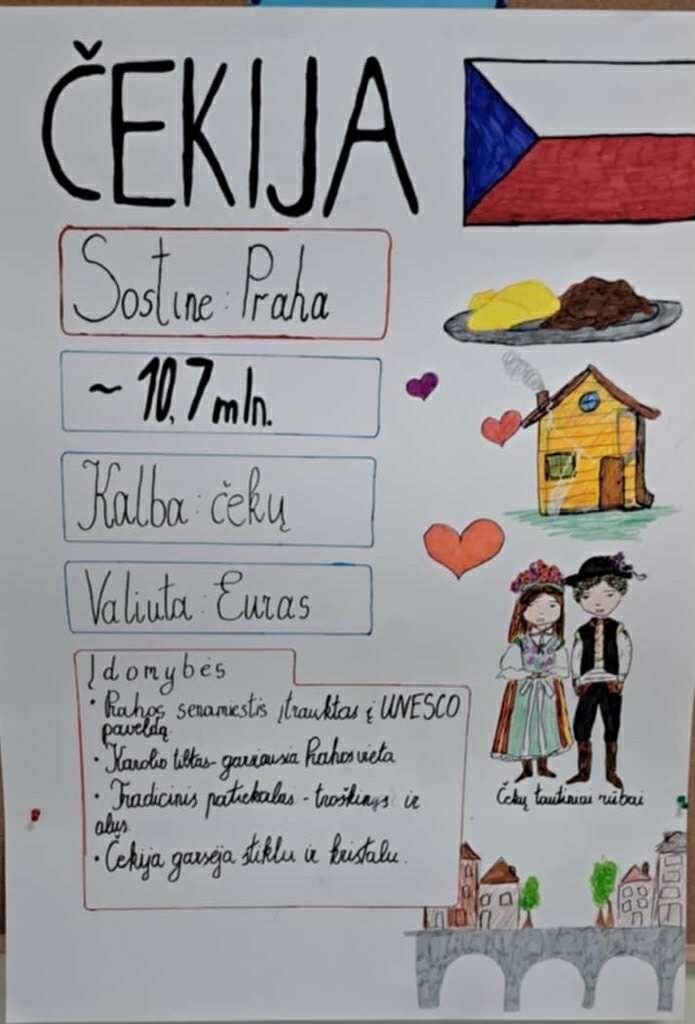 ČEKIJA
Sostinė: Praha
~ 10,7 mln.
Kalba: čekų
Valiuta: Euras
Įdomybės
• Prahos senamiestis įtrauktas į UNESCO
paveldą
• Karolio tiltas - garsiausia Prahos vieta
• Tradicinis patiekalas - troškinys ir
alus
• Čekija garsėja stiklu ir kristalu.
Čekų tautiniai rūbai